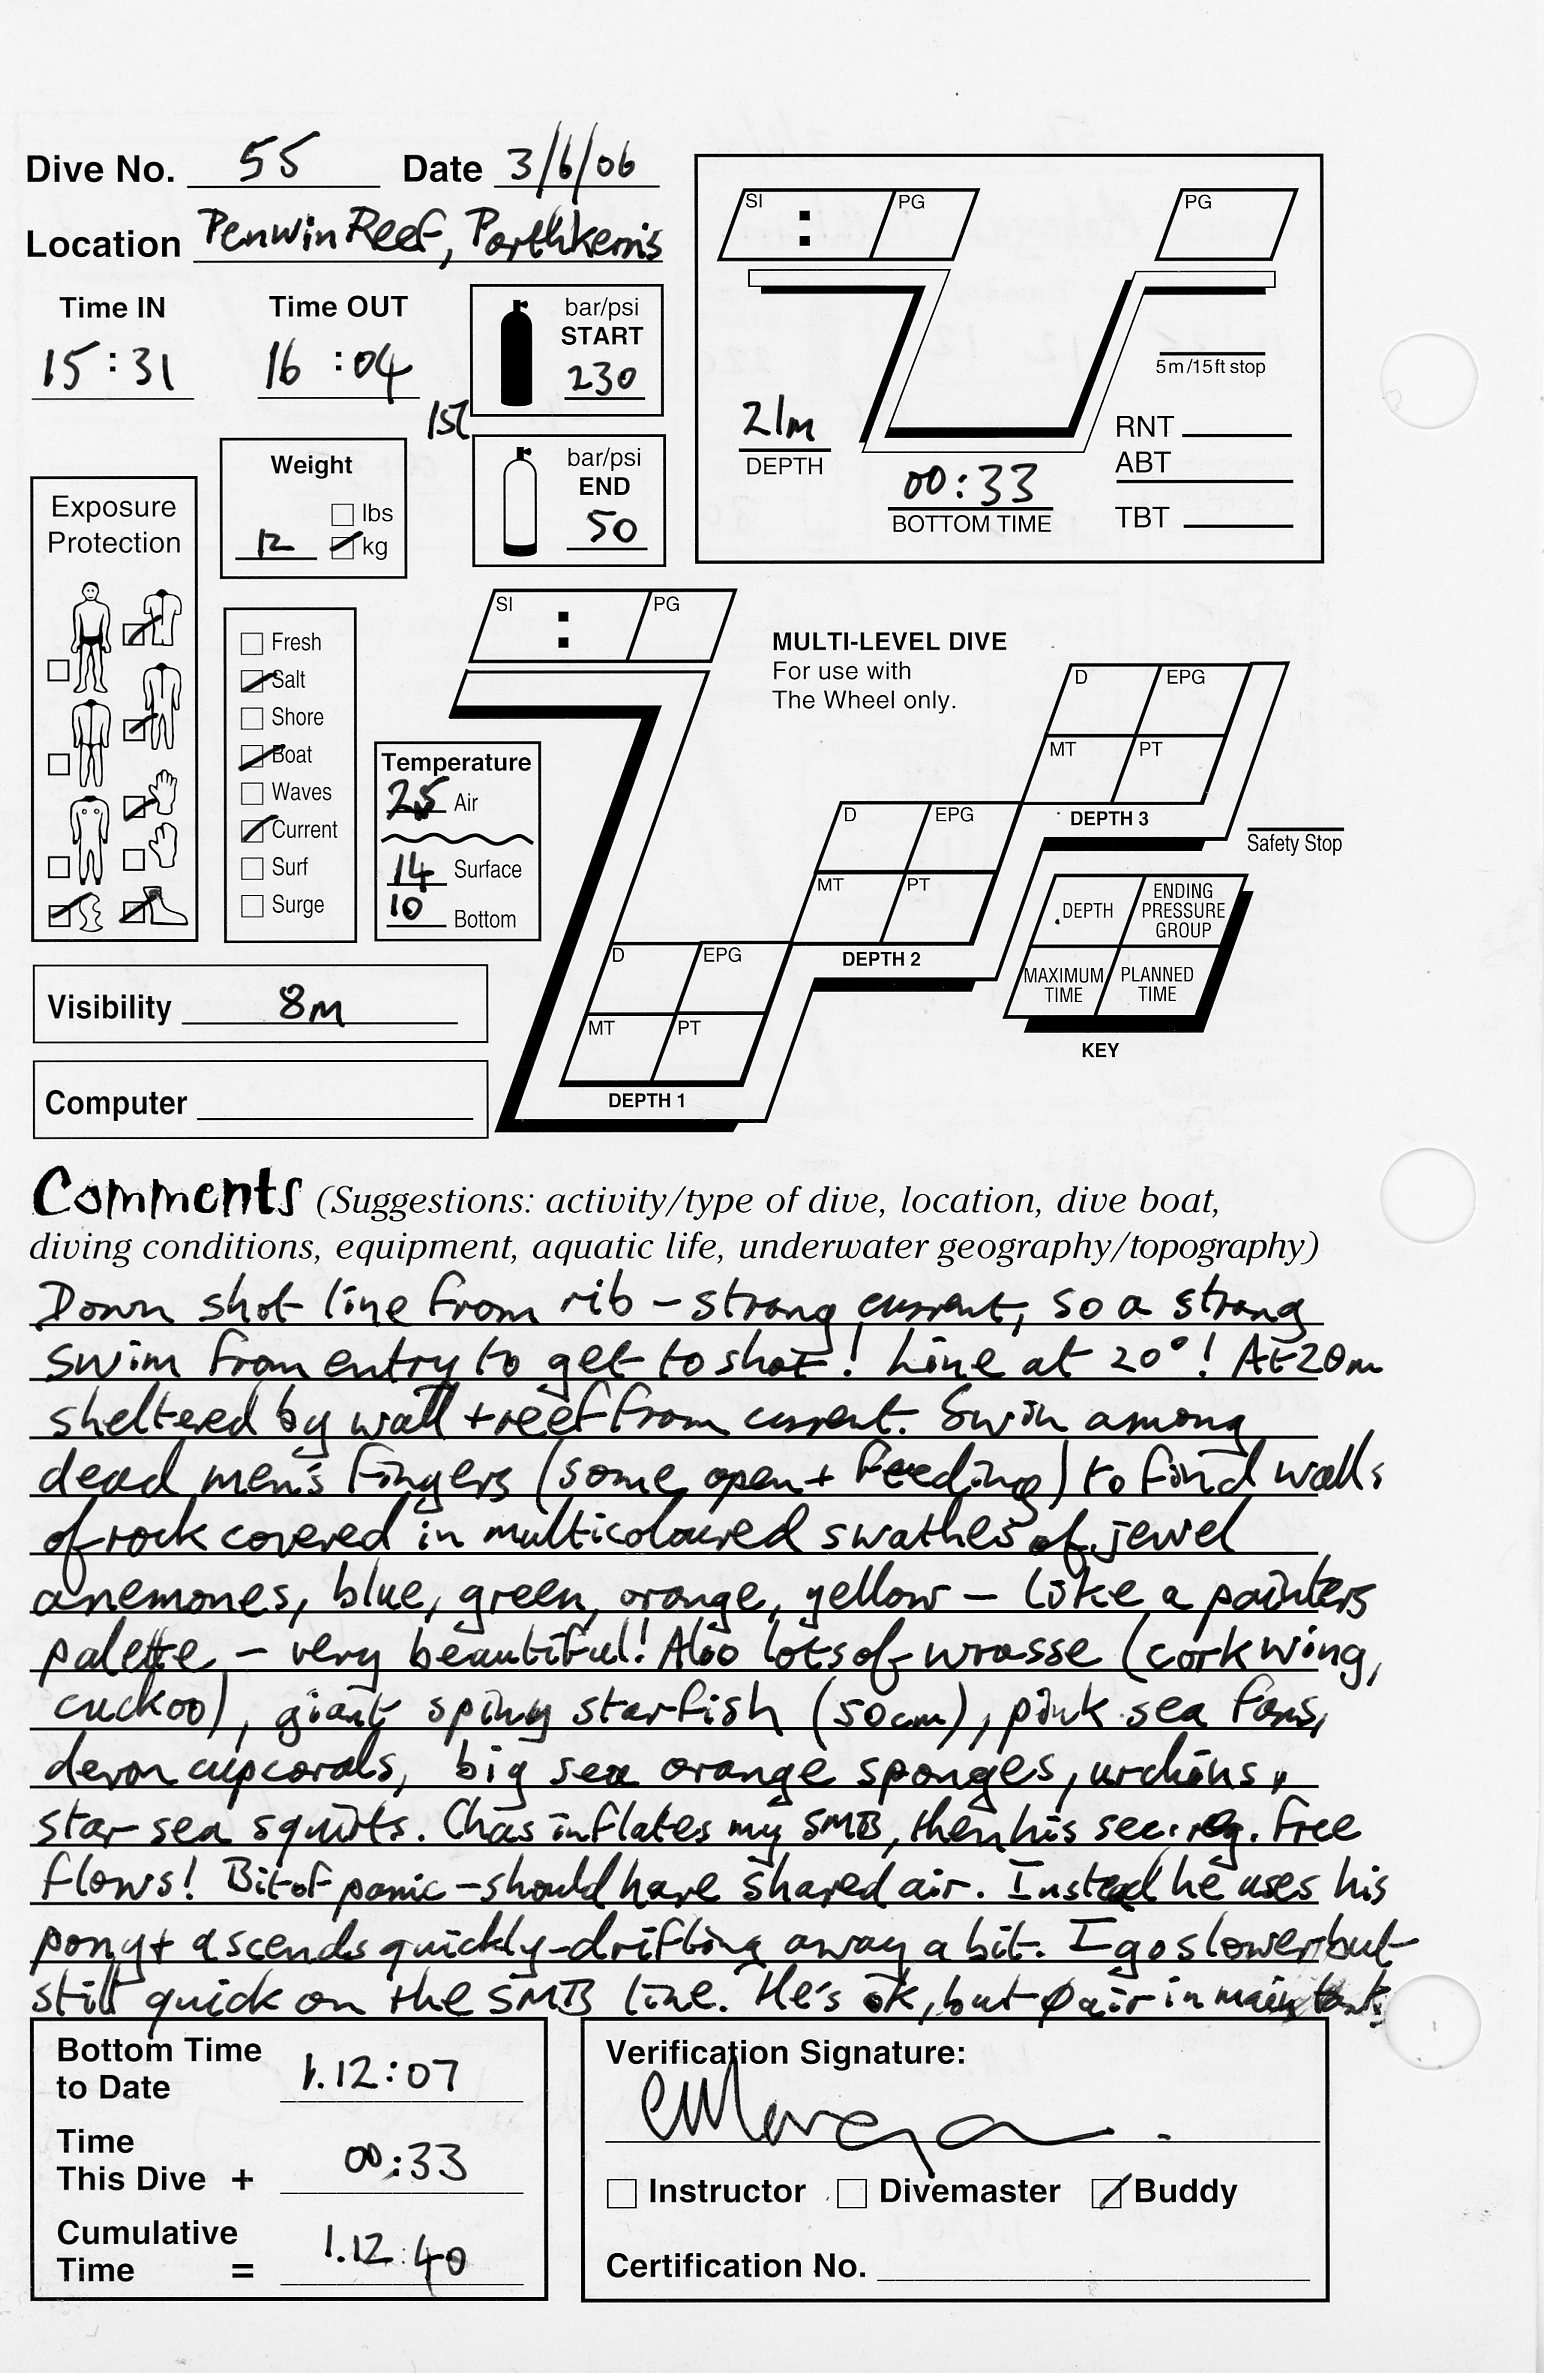 Dive No. 55 Date 3/6/06
Location Penwin Reef, Porthkerris
Time IN Time OUT
15:31 16:04
15L
bar/psi
START
230
bar/psi
END
50
Weight
lbs
12 kg
Exposure
Protection
Fresh
Salt
Shore
Boat
Waves
Current
Surf
Surge
Temperature
25 Air
14 Surface
10 Bottom
Visibility 8m
Computer
SI : PG PG
5m/15ft stop
21m
DEPTH
00:33
BOTTOM TIME
RNT
ABT
TBT
SI : PG
MULTI-LEVEL DIVE
For use with
The Wheel only.
D EPG
MT PT
DEPTH 3
D EPG
MT PT
DEPTH 2
D EPG
MT PT
DEPTH 1
Safety Stop
DEPTH ENDING PRESSURE GROUP
MAXIMUM TIME PLANNED TIME
KEY
Comments (Suggestions: activity/type of dive, location, dive boat,
diving conditions, equipment, aquatic life, underwater geography/topography)
Down shot line from rib - strong current, so a strong
swim from entry to get to shot! Line at 20°! At 20m
sheltered by wall + reef from current. Swim among
dead men's fingers (some open + feeding) to find walls
of rock covered in multicoloured swathes of jewel
anemones, blue, green, orange, yellow - like a painters
palette - very beautiful! Also lots of wrasse (corkwing,
cuckoo), giant spiny starfish (50cm), pink sea fans,
devon cupcorals, big sea orange sponges, urchins,
star sea squirts. Chas inflates my SMB, then his sec. reg. free
flows! Bit of panic - should have shared air. Instead he uses his
pony + ascends quickly - drifting away a bit. I go slower but
still quick on the SMB line. He's ok, but Ø air in main tank
Bottom Time
to Date 1.12:07
Time
This Dive + 00:33
Cumulative
Time = 1.12:40
Verification Signature:
Instructor Divemaster Buddy
Certification No.